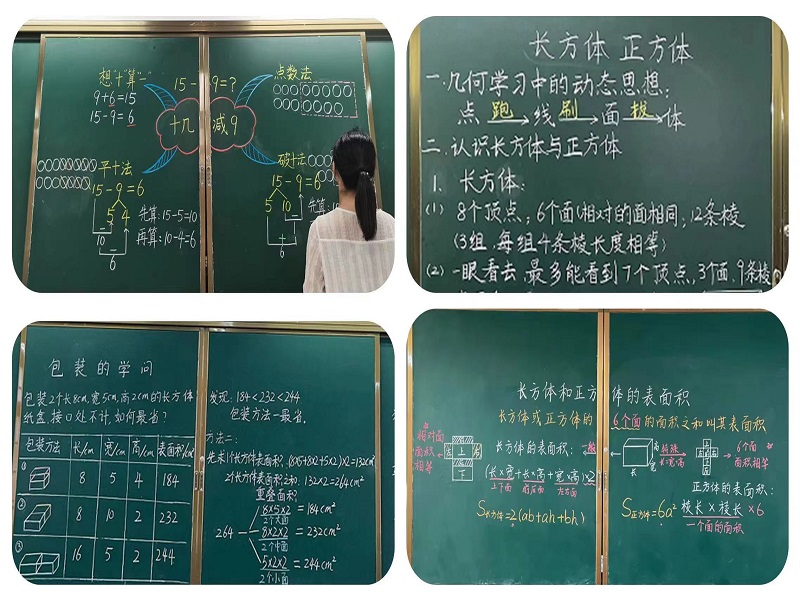 想"十"算"一"
9+6=15
15-9=6
15-9=?
点数法
十几 减9
平十法
15-9=6
5 4
10
6
先算:15-5=10
再算:10-4=6
破十法
15-9=6
5 10
6
先算:1
长方体 正方体
一.几何学习中的动态思想:
点 跑 线 刷 面 拔 体
二.认识长方体与正方体
1. 长方体:
(1) 8个顶点;6个面(相对的面相同;12条棱
(3组,每组4条棱长度相等)
(2) 一眼看去,最多能看到7个顶点,3个面,9条棱
包装的学问
包装2个长8cm,宽5cm,高2cm的长方体
纸盒,接口处不计,如何最省?
包装方法 长/cm 宽/cm 高/cm 表面积/cm²
① 8 5 4 184
② 8 10 2 232
③ 16 5 2 244
发现:184<232<244
包装方法一最省。
方法二:
先求1个长方体表面积:(8x5+8x2+5x2)x2=132cm²
2个长方体表面积之和:132x2=264cm²
重叠面积:
264
8x5x2=184cm²
2个大面
8x2x2=232cm²
2个中面
5x2x2=244cm²
2个小面
长方体和正方体的表面积
长方体或正方体的6个面的面积之和叫其表面积
相对面
面积
相等
上
下
长方体的表面积:
(长×宽+长×高+宽×高)×2
上下面 前后面 左右面
S长方体=2(ab+ah+bh)
长=宽=高
6个面
面积相等
正方体的表面积:
S正方体=6a² 棱长×棱长×6
一个面的面积